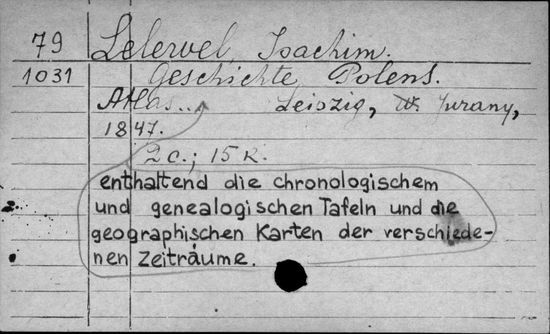 79 Lelewel, Joachim.
1031 Geschichte Polens.
Atlas... Leipzig, Jurany,
1847.
2 c.; 15 K.
enthaltend die chronologischem
und genealogischen Tafeln und die
geographischen Karten der verschiede-
nen Zeiträume.